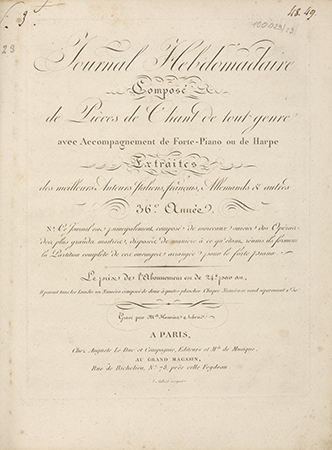 48.49.
Journal Hebdomadaire
Composé
de Pièces de Chant de tout genre
avec Accompagnement de Forte-Piano ou de Harpe
Extraites
des meilleurs Auteurs Italiens, français, Allemands & autres
36e. Année.
Na. Ce Journal est principalement composé de morceaux
des plus grands maîtres, disposés de manière à ce qu'étant réunis ils forment
la Partition complète de ces ouvrages arrangée pour le forte piano.
Le prix de l'Abonnement est de 24# par an,
il parait tous les Lundis un Numéro composé de deux à quatre planches Chaque Numéro se vend séparément
Gravé par Me.
A PARIS,
Chez Auguste Le Duc et Compagnie, Editeurs et Mds. de Musique,
AU GRAND MAGASIN,
Rue de Richelieu, No. 78, près celle Feydeau